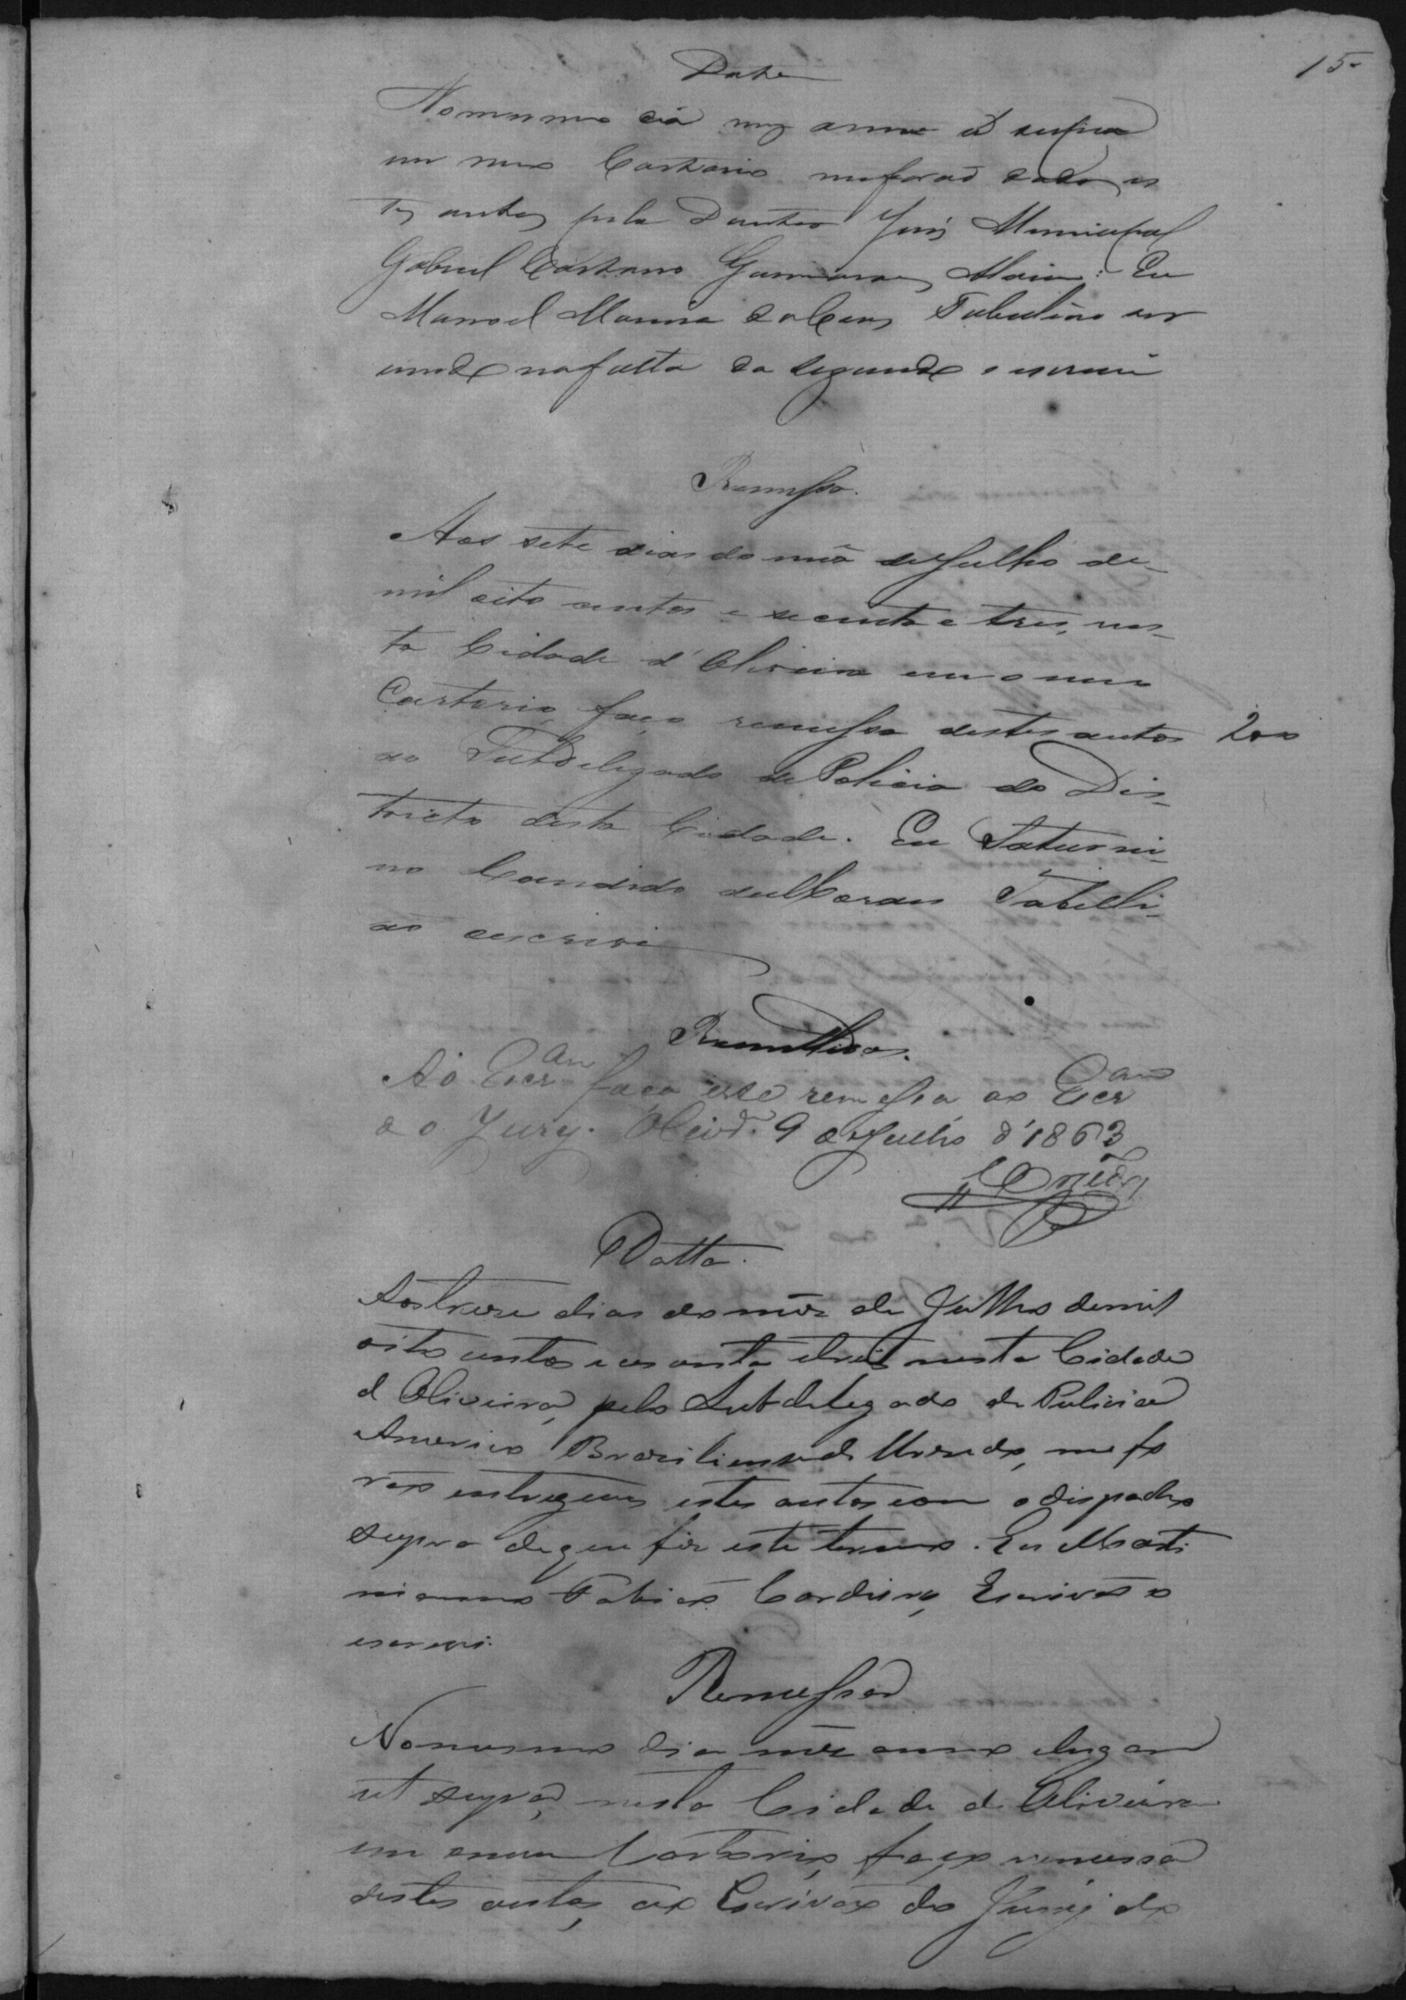 15
Data
No mesmo dia mez anno ut supra
em meu Cartorio me forão dados es
tes autos pelo Doutor Juis Municipal
Gabriel Caetano Guimarães Alvim: Eu
Manoel da Tabelião ser
vindo na falta do segundo o escrevi
Remessa.
Aos sete dias do mês de Julho de
mil oito centos e secenta e tres, nes-
ta Cidade d'Oliveira em o meu
Cartorio faço remessa destes autos 200
ao Subdelegado de Policia do Dis-
tricto desta Cidade. Eu Saturni-
no Candido de Tabelli-
ao escrevi
Remettidos.
faça este remessa ao Escr.am
do Jury. 9 de Julho d'1863
Datta.
Aos treze dias do mêz de Julho de mil
oito centos e cesenta e treis nesta Cidade
d'Oliveira, pelo Subdelegado de Policia
Americo Braziliense de me fo
rão entregues estes autos com o dispacho
supra de que fiz este termo. Eu Marti
nianno Cordeiro, Escrivão o
escrevi.
Remessa
No mesmo dia mêz anno e lugar
ut supra, nesta Cidade de Oliveira
em o meu Cartorio, faço remessa
destes autos, ao Escrivão do Jury do